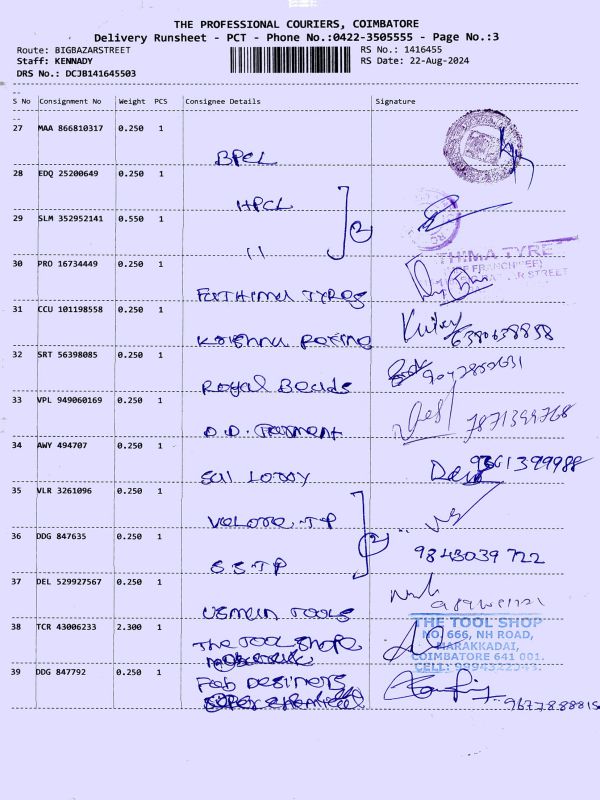 THE PROFESSIONAL COURIERS, COIMBATORE
Delivery Runsheet - PCT - Phone No.:0422-3505555 - Page No.:3
Route: BIGBAZARSTREET RS No.: 1416455
Staff: KENNADY RS Date: 22-Aug-2024
DRS No.: DCJB141645503
S No Consignment No Weight PCS Consignee Details Signature
27 MAA 866810317 0.250 1
BPCL
28 EDQ 25200649 0.250 1
HPCL
29 SLM 352952141 0.550 1
11
2
30 PRO 16734449 0.250 1
THIMA TYRE
FATHIMA TYRES
31 CCU 101198558 0.250 1
32 SRT 56398085 0.250 1
Royal Beads
33 VPL 949060169 0.250 1
7871399768
34 AWY 494707 0.250 1
Sai Lorry
35 VLR 3261096 0.250 1
36 DDG 847635 0.250 1
S.S.T.P
2
9843039722
37 DEL 529927567 0.250 1
TOOLS
38 TCR 43006233 2.300 1
The Tool Shope
THE TOOL SHOP
NO. 666, NH ROAD,
MARAKKADAI,
COIMBATORE 641 001.
39 DDG 847792 0.250 1
Fab Desiners
9677888815